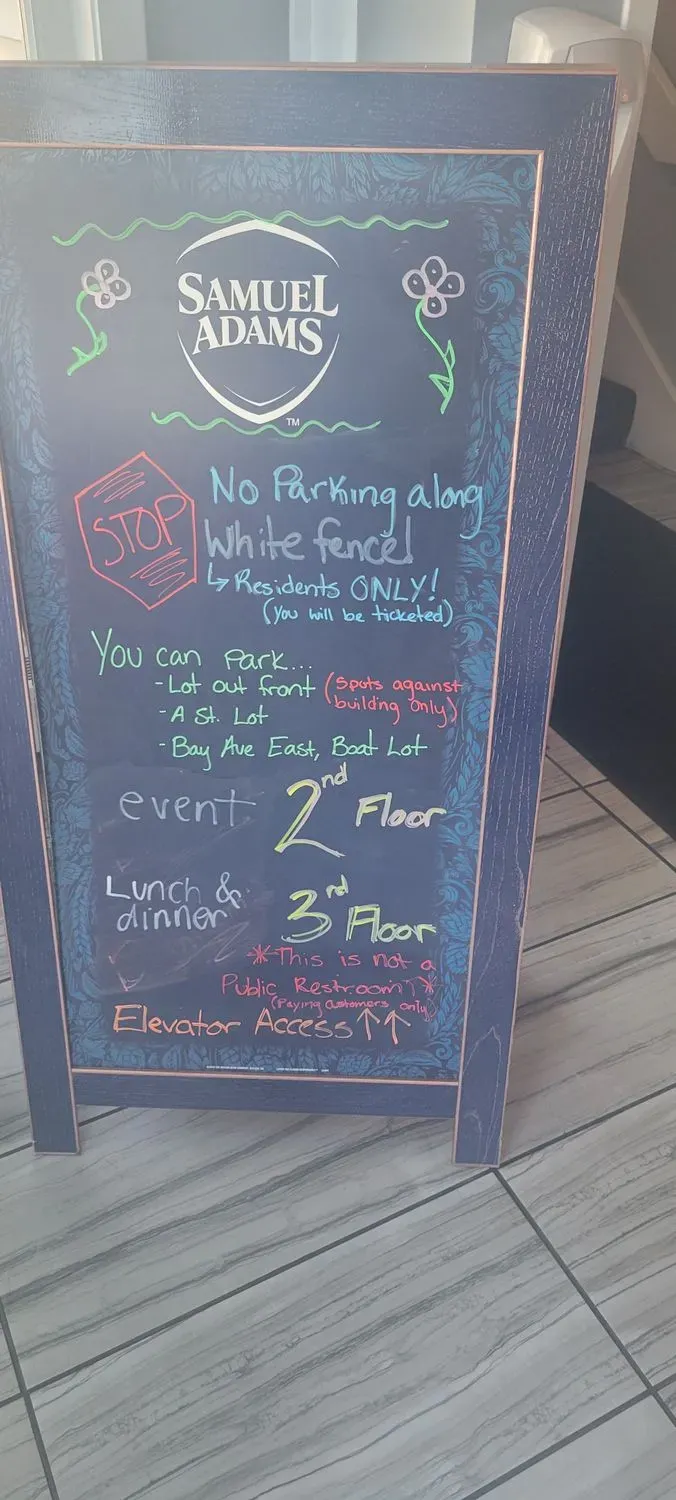 SAMUEL
ADAMS
TM
STOP
No Parking along
White fence!
↳ Residents ONLY!
(You will be ticketed)
You can Park...
- Lot out front (Spots against
building only)
- A St. Lot
- Bay Ave East, Boat Lot
event 2nd Floor
Lunch &
dinner 3rd Floor
*This is not a
Public Restroom!*
(Paying customers only)
Elevator Access ↑↑